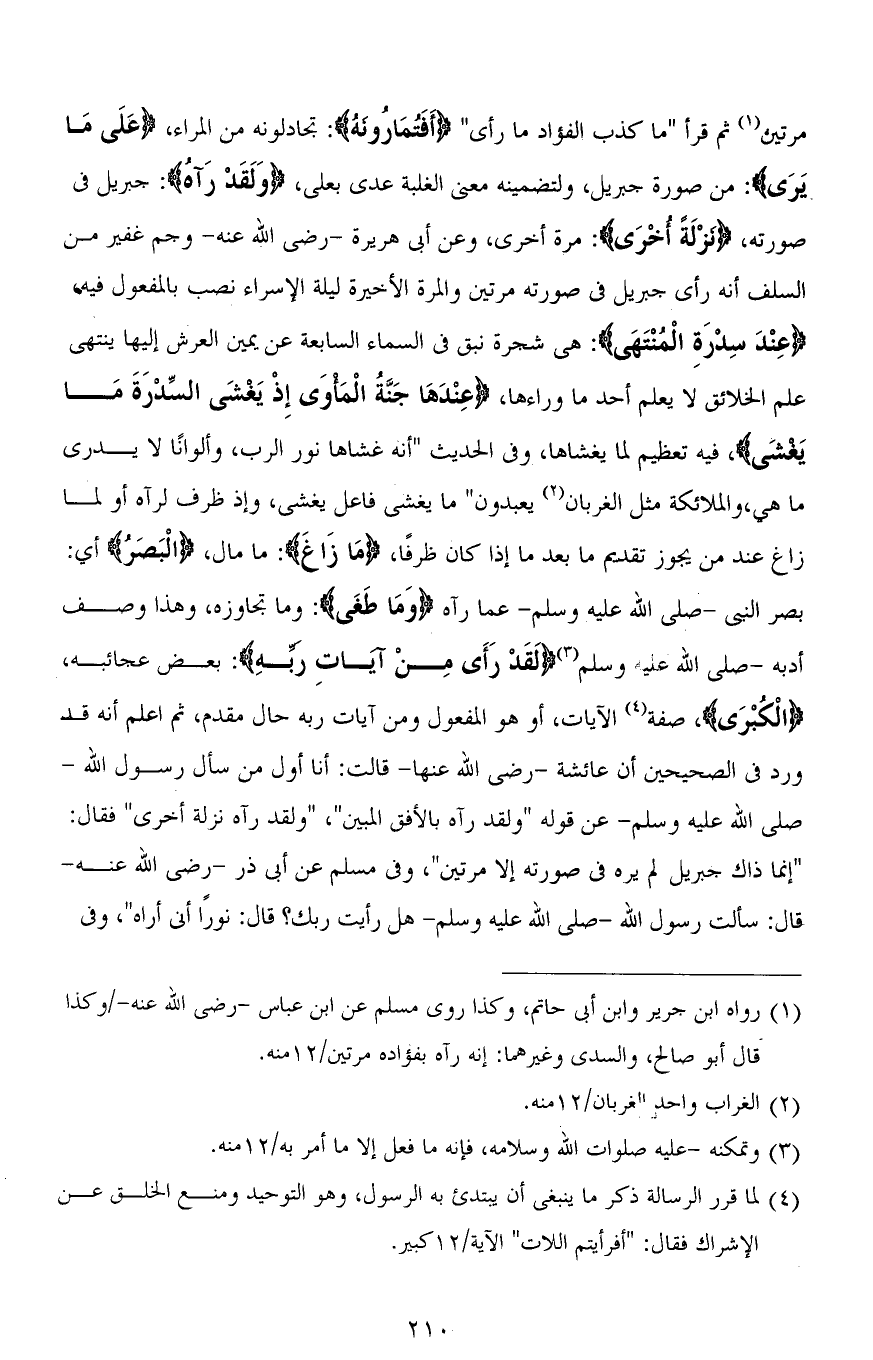 مرتين(١) ثم قرأ "ما كذب الفؤاد ما رأى" ﴿أَفَتُمَارُونَهُ﴾: تجادلونه من المراء، ﴿عَلَى مَا
يَرَى﴾: من صورة جبريل، ولتضمينه معنى الغلبة عدى بعلى، ﴿وَلَقَدْ رَآهُ﴾: جبريل فى
صورته، ﴿نَزْلَةً أُخْرَى﴾: مرة أخرى، وعن أبى هريرة -رضى الله عنه- وجم غفير مـن
السلف أنه رأى جبريل فى صورته مرتين والمرة الأخيرة ليلة الإسراء نصب بالمفعول فيه،
﴿عِنْدَ سِدْرَةِ الْمُنْتَهَى﴾: هى شجرة نبق فى السماء السابعة عن يمين العرش إليها ينتهى
علم الخلائق لا يعلم أحد ما وراءها، ﴿عِنْدَهَا جَنَّةُ الْمَأْوَى إِذْ يَغْشَى السِّدْرَةَ مَـــا
يَغْشَى﴾، فيه تعظيم لما يغشاها، وفى الحديث "أنه غشاها نور الرب، وألوانًا لا يـــدرى
ما هي،والملائكة مثل الغربان(٢) يعبدون" ما يغشى فاعل يغشى، وإذ ظرف لرآه أو لمـــا
زاغ عند من يجوز تقديم ما بعد ما إذا كان ظرفًا، ﴿مَا زَاغَ﴾: ما مال، ﴿الْبَصَرُ﴾ أي:
بصر النبى -صلى الله عليه وسلم- عما رآه ﴿وَمَا طَغَى﴾: وما تجاوزه، وهذا وصـــف
أدبه -صلى الله عليه وسلم(٣)﴿لَقَدْ رَأَى مِـــنْ آيَـــاتِ رَبِّـــهِ﴾: بعـــض عجائبـــه،
﴿الْكُبْرَى﴾، صفة(٤) الآيات، أو هو المفعول ومن آيات ربه حال مقدم، ثم اعلم أنه قـد
ورد فى الصحيحين أن عائشة -رضى الله عنها- قالت: أنا أول من سأل رســول الله -
صلى الله عليه وسلم- عن قوله "ولقد رآه بالأفق المبين"، "ولقد رآه نزلة أخرى" فقال:
"إنما ذاك جبريل لم يره فى صورته إلا مرتين"، وفى مسلم عن أبى ذر -رضى الله عنـــه-
قال: سألت رسول الله -صلى الله عليه وسلم- هل رأيت ربك؟ قال: نوراً أنى أراه"، وفى
(١) رواه ابن جرير وابن أبى حاتم، وكذا روى مسلم عن ابن عباس -رضى الله عنه-/وكذا
قال أبو صالح، والسدى وغيرهما: إنه رآه بفؤاده مرتين/١٢منه.
(٢) الغراب واحد الغربان/١٢منه.
(٣) وتمكنه -عليه صلوات الله وسلامه، فإنه ما فعل إلا ما أمر به/١٢منه.
(٤) لما قرر الرسالة ذكر ما ينبغى أن يبتدئ به الرسول، وهو التوحيد ومنـــع الخلـــق عـــن
الإشراك فقال: "أفرأيتم اللات" الآية/١٢كبير.
٢١٠